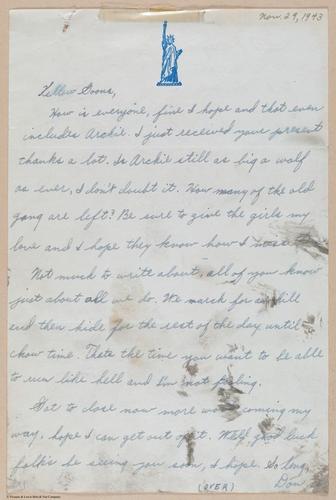 Nov. 29, 1943
Fellow Goons,
How is everyone, fine I hope and that even
includes Archie. I just received your present
thanks a lot. Is Archie still as big a wolf
as ever, I don't doubt it. How many of the old
gang are left? Be sure to give the girls my
love and I hope they know how I
Not much to write about, all of you know
just about all we do. We march for
and then hide for the rest of the day until
chow time. Thats the time you want to be able
to run like hell and I'm not fooling.
Got to close now more work coming my
way, hope I can get out of it. Well, good luck
folks be seeing you soon, I hope. So long,
Don
(OVER)